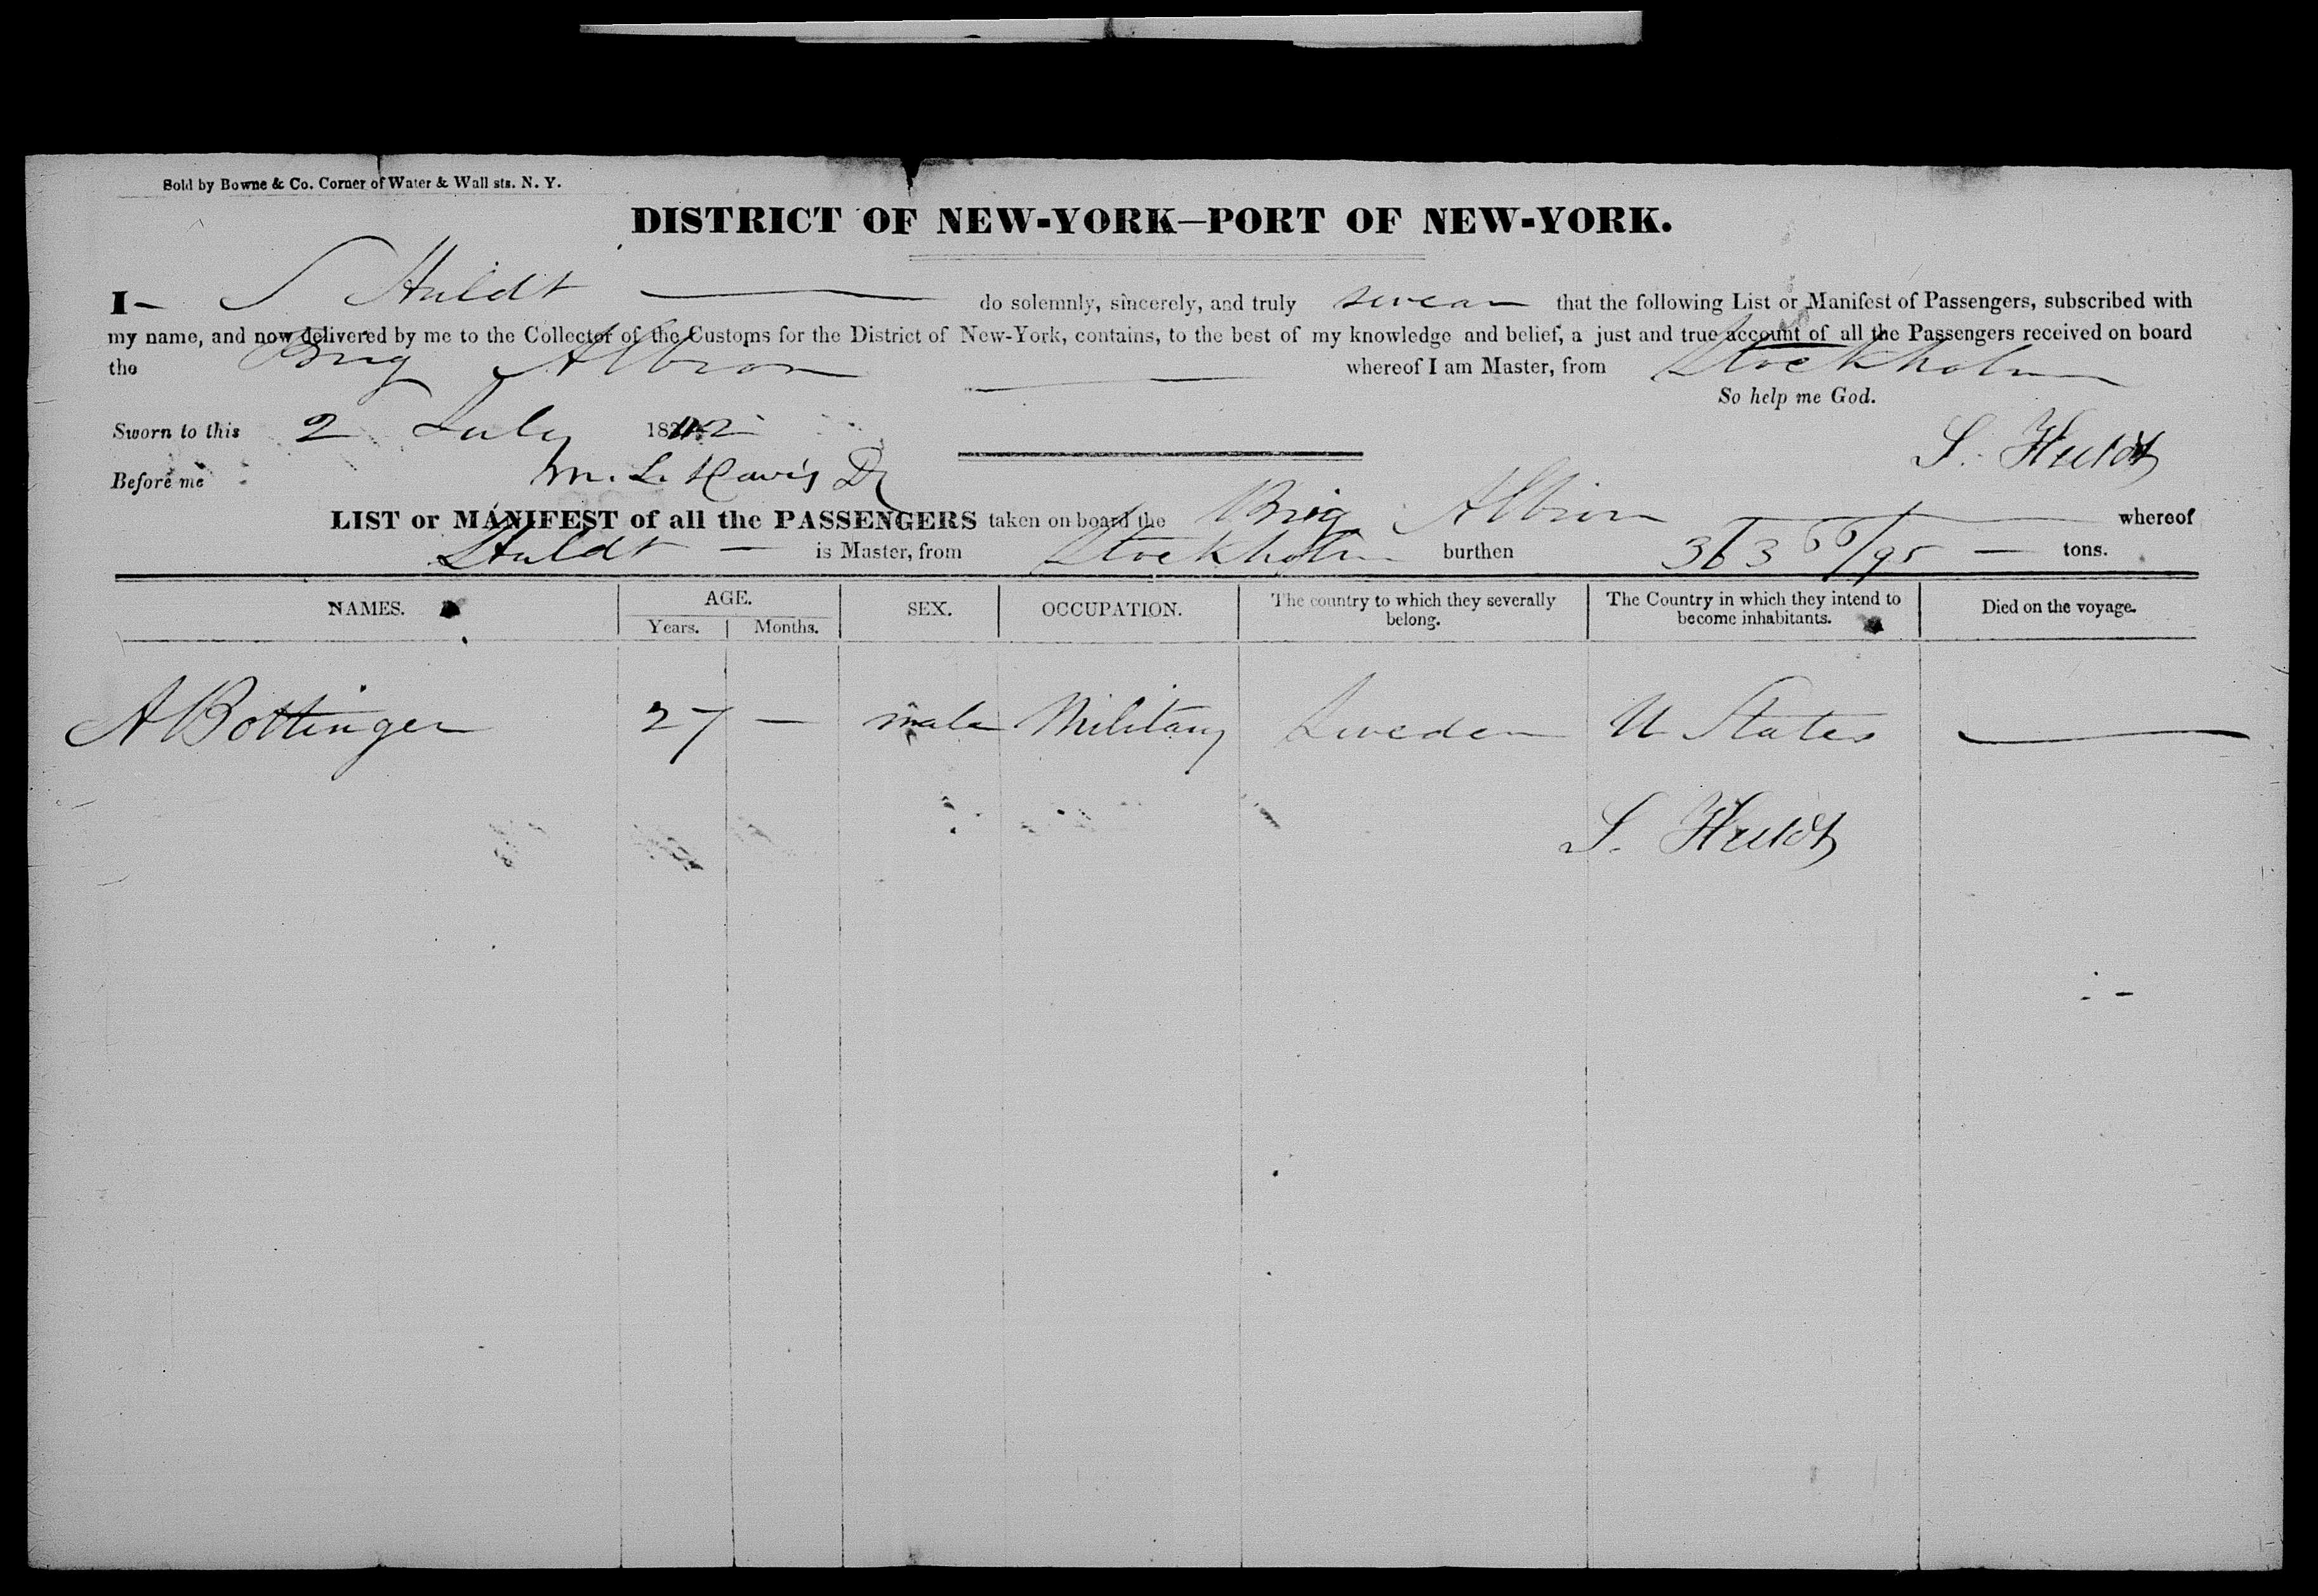 Sold by Bowne & Co. Corner of Water & Wall sts. N. Y.
DISTRICT OF NEW-YORK—PORT OF NEW-YORK.
I— S Huldt — do solemnly, sincerely, and truly swear that the following List or Manifest of Passengers, subscribed with
my name, and now delivered by me to the Collector of the Customs for the District of New-York, contains, to the best of my knowledge and belief, a just and true account of all the Passengers received on board
the Brig Albion — whereof I am Master, from Stockholm
So help me God.
Sworn to this 2 July 1842
S. Huldt
Before me M. L. Davis
LIST or MANIFEST of all the PASSENGERS taken on board the Brig Albion — whereof
S Huldt — is Master, from Stockholm burthen 363 55/95 — tons.
NAMES. AGE. SEX. OCCUPATION. The country to which they severally belong. The Country in which they intend to become inhabitants. Died on the voyage.
Years. Months.
A Bottinger 27 — male Military Sweden U States —
S. Huldt